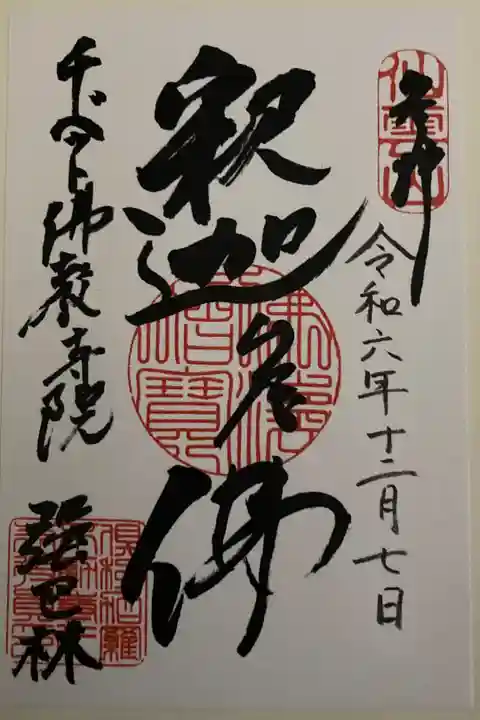 奉拝
令和六年十二月七日
釈迦牟尼佛
チベット佛教寺院
強巴林
佛法僧寶